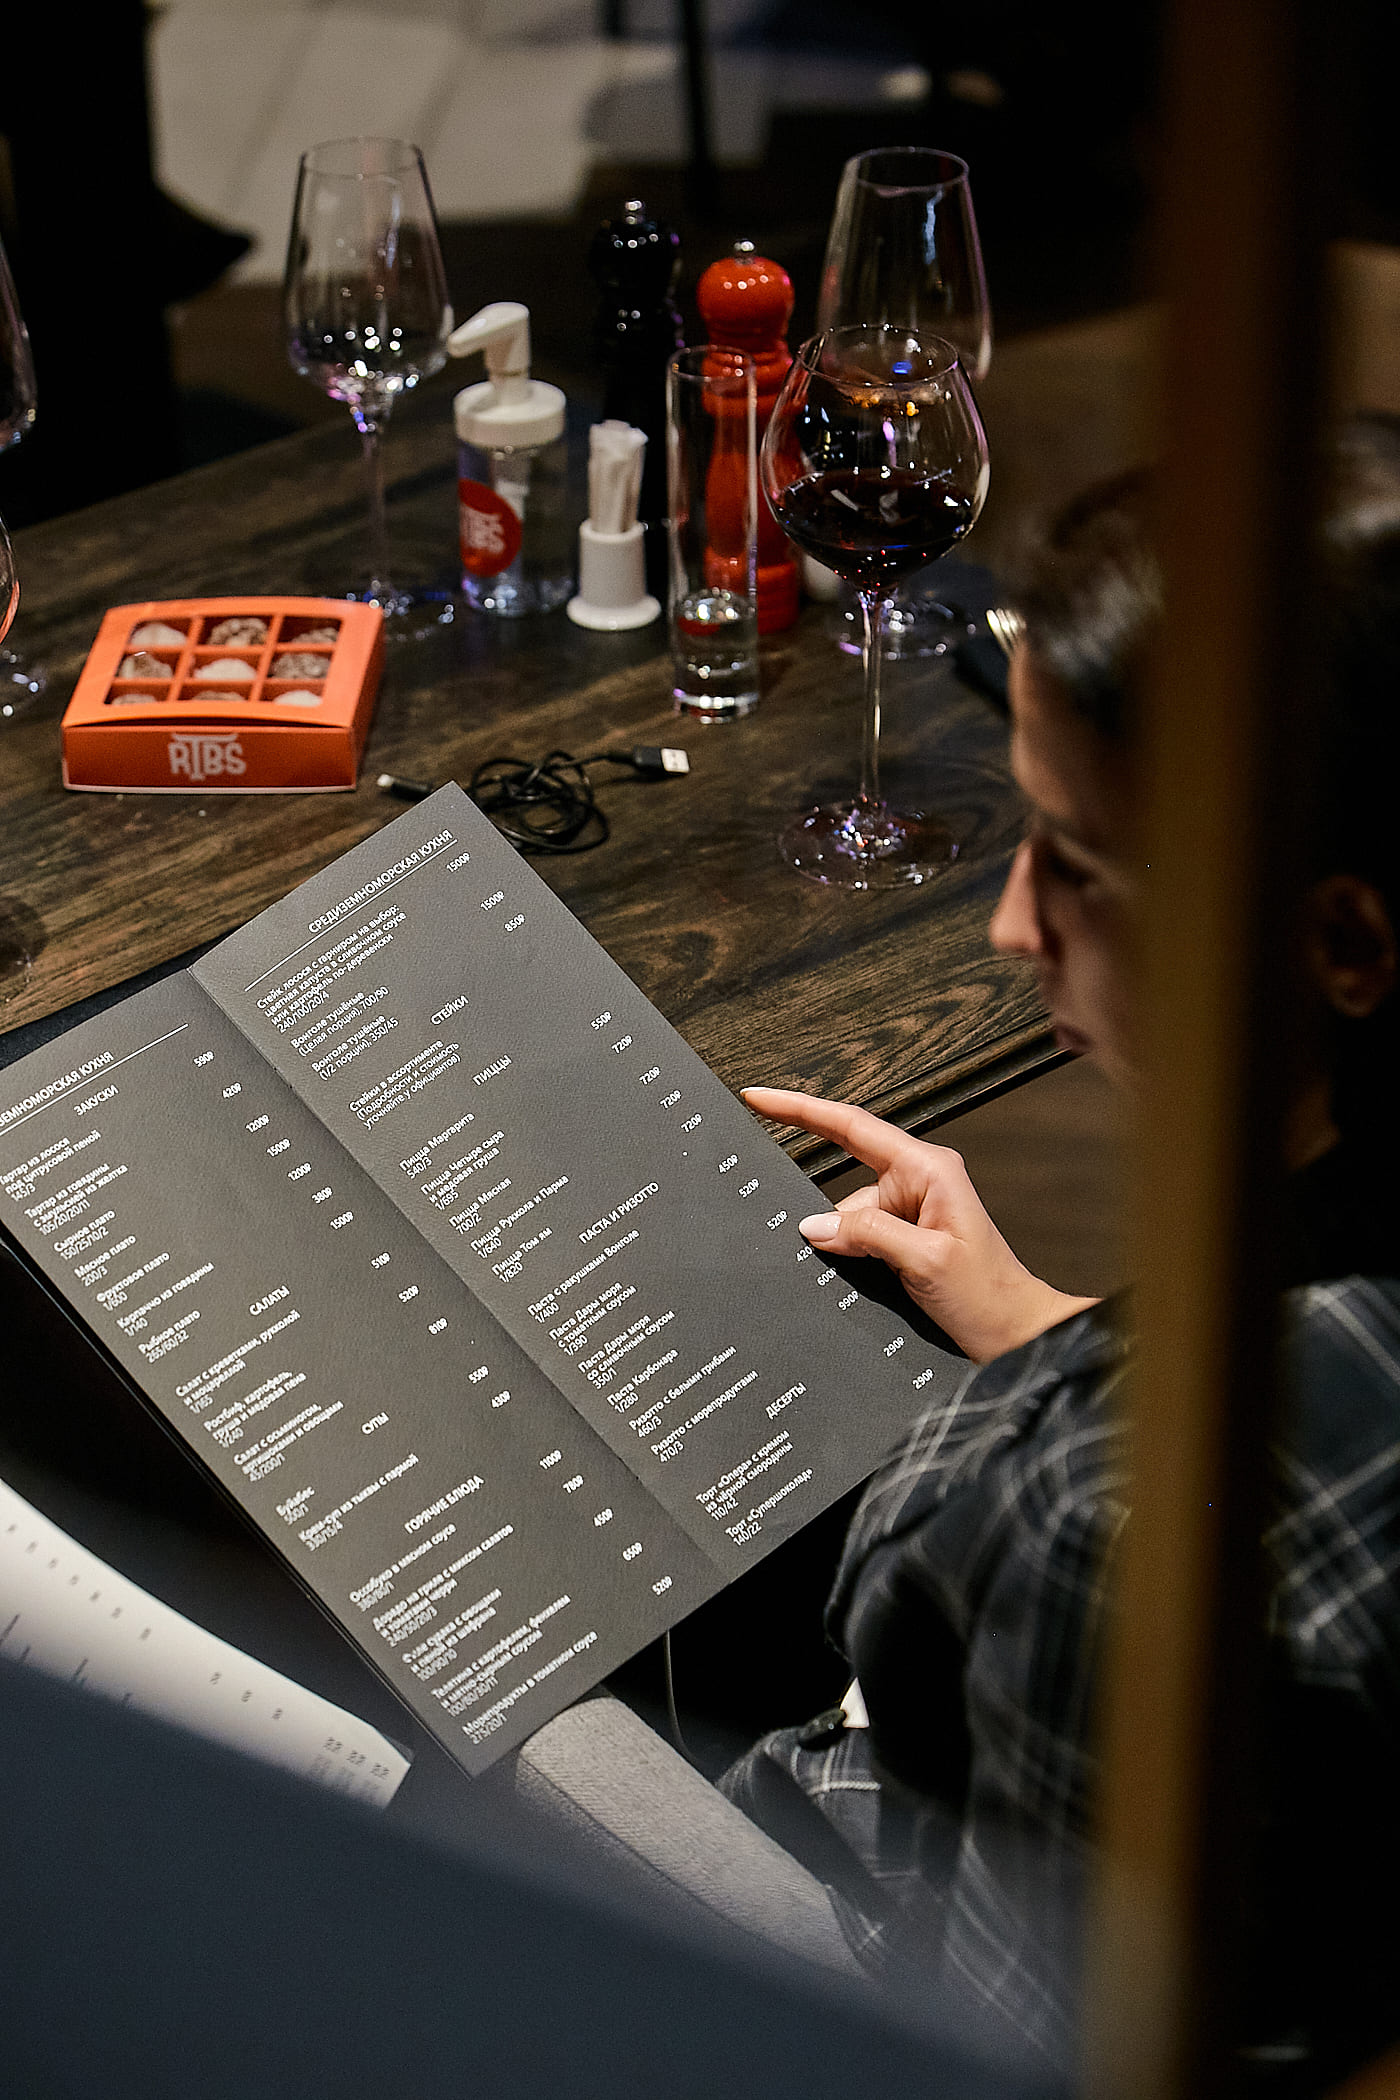 RIBS
RIBS
ЗЕМНОМОРСКАЯ КУХНЯ
ЗАКУСКИ
Тартар из лосося 590₽
под цитрусовой пеной
145/3
Тартар из говядины 420₽
с эмульсией из желтка
105/20/20/11
Сырное плато 1200₽
150/25/10/2
Мясное плато 1500₽
200/3
Фруктовое плато 1200₽
1/600
Карпаччо из говядины 380₽
1/140
Рыбное плато 1500₽
255/60/32
САЛАТЫ
Салат с креветками, рукколой 510₽
и моцареллой
1/165
Ростбиф, картофель, 520₽
груша и медовая пена
1/240
Салат с осьминогом, 810₽
артишоками и овощами
45/200/1
СУПЫ
Буйабес 550₽
300/1
Крем-суп из тыквы с пармой 430₽
330/15/4
ГОРЯЧИЕ БЛЮДА
Оссобуко в мясном соусе 1100₽
380/80/1
Дорадо на гриле с миксом салатов 780₽
и томатами черри
240/50/20/3
Суфле судака с овощами 450₽
100/90/10
Телятина с картофелем, фенхелем 650₽
и мятно-сырным соусом
100/80/30/11
Морепродукты в томатном соусе 520₽
275/20/1
СРЕДИЗЕМНОМОРСКАЯ КУХНЯ
Стейк лосося с гарниром на выбор: 1500₽
цветная капуста в сливочном соусе
или картофель по-деревенски
240/100/20/4
Вонголе тушёные 1500₽
(Целая порция), 700/90
Вонголе тушёные 850₽
(1/2 порции), 350/45
СТЕЙКИ
Стейки в ассортименте
(Подробности и стоимость
уточняйте у официантов)
ПИЦЦЫ
Пицца Маргарита 550₽
540/3
Пицца Четыре сыра 720₽
и медовая груша
1/695
Пицца Мясная 720₽
700/2
Пицца Руккола и Парма 720₽
1/640
Пицца Том ям 720₽
1/820
ПАСТА И РИЗОТТО
Паста с ракушками Вонголе 450₽
1/400
Паста Дары моря 520₽
с томатным соусом
1/390
Паста Дары моря 520₽
со сливочным соусом
350/1
Паста Карбонара 420
1/280
Ризотто с белыми грибами 600₽
460/3
Ризотто с морепродуктами 990₽
470/3
ДЕСЕРТЫ
Торт «Опера» с кремом 290₽
из чёрной смородины
110/42
Торт «Супершоколад» 290₽
140/22